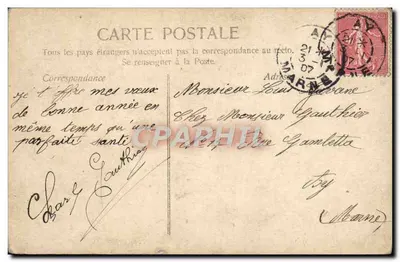 CARTE POSTALE
Tous les pays étrangers n'acceptent pas la correspondance au recto.
Se renseigner à la Poste.
Correspondance
je t'offre mes vœux
de bonne année en
même temps qu'une
parfaite santé
Charl Gauthier
Monsieur Louis
Chez Monsieur Gauthier
Rue Gambetta
Ay
(Marne)
AY
21
3
07
MARNE
AY